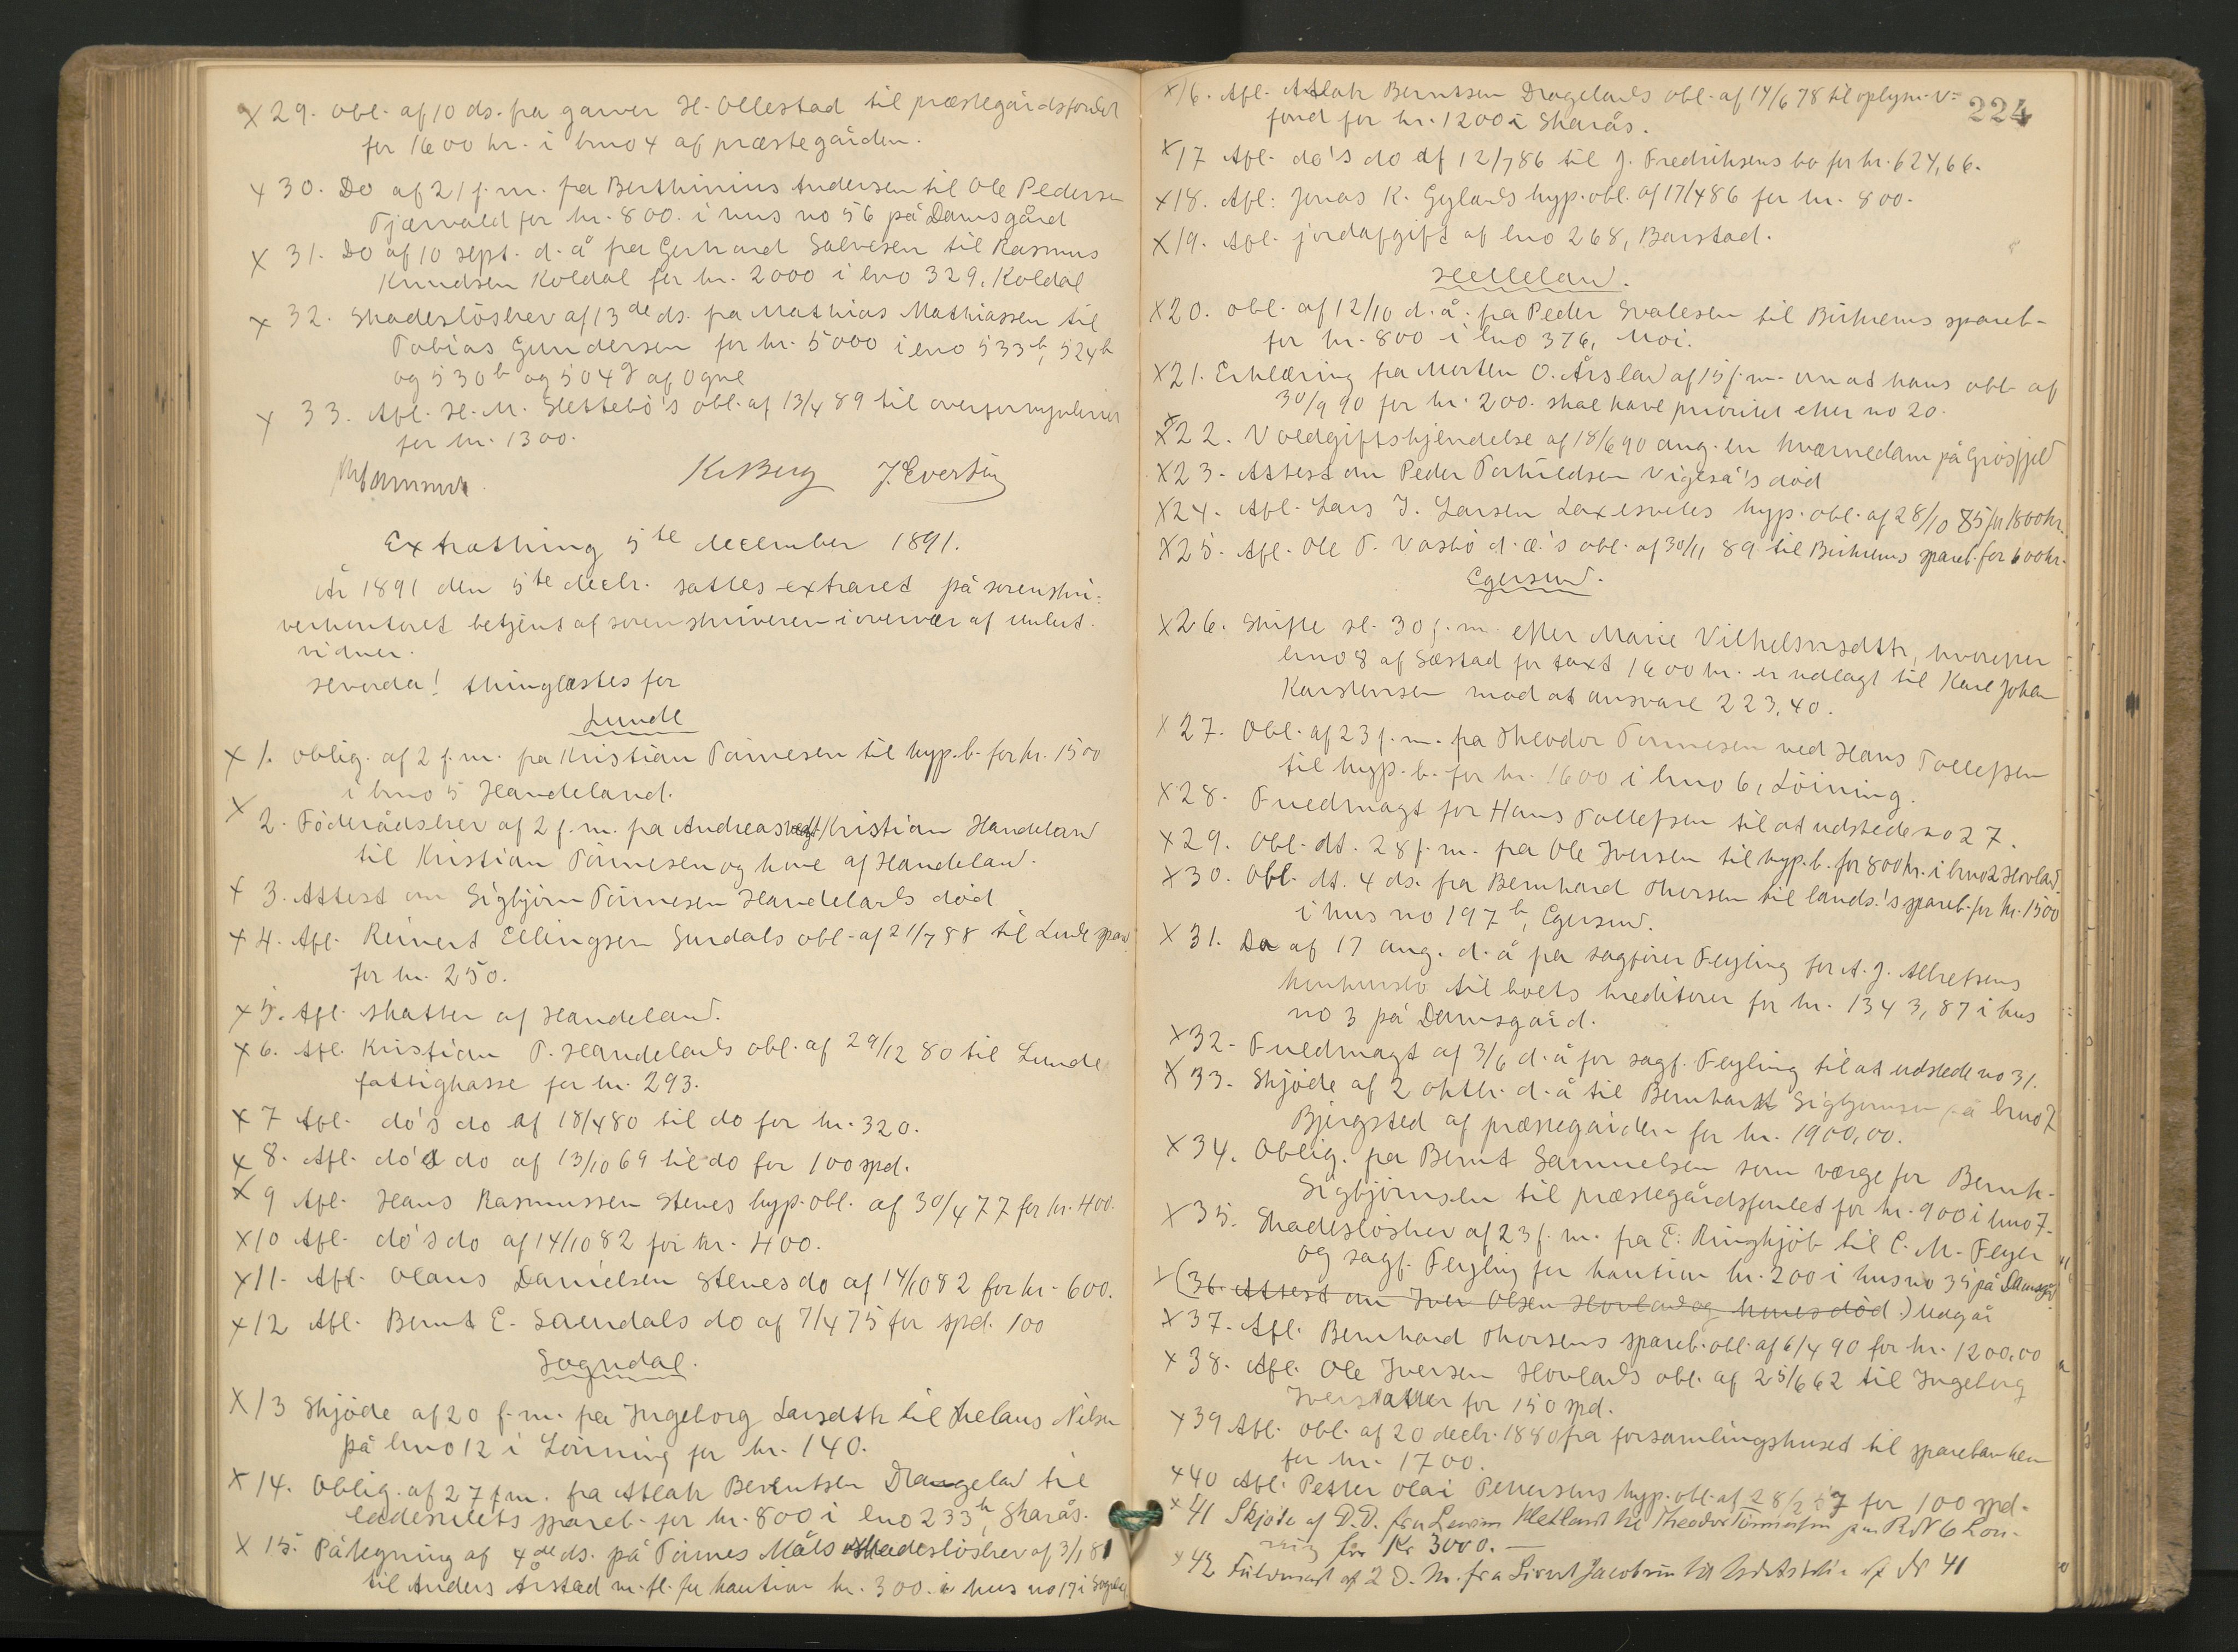 x 29. Obl. af 10 ds. fra garver H. Ollestad til præstegårdsfondet
for 1600 kr. i bno 4 af præstegården.
x 30. Do af 21 f.m. fra Berthinius Andersen til Ole Pedersen
Tjærvald for kr. 800. i hus no 56 på Damsgård
x 31. Do af 10 sept. d.å fra Gerhard Salvesen til Rasmus
Knudsen Koldal for kr. 2000 i lno 329, Koldal
x 32. Skadesløsbrev af 13de ds. fra Mathias Mathiassen til
Tobias Gundersen for kr. 5000 i lno 533b, 524b
og 530b og 504g af Ogne
x 33. Afl. H. M. Slettebø's obl. af 13/4 89 til overformynderiet
for kr. 1300.
K. Berg J. Evertsen
Extrathing 5te december 1891.
År 1891 den 5te decbr. sattes extraret på sorenskri-
verkontoret betjent af sorenskriveren i overvær af undert.
vidner.
Hvorda! thinglæstes for
Lunde
x 1. Oblig. af 2 f.m. fra Kristian Tønnesen til hyp.b. for kr. 1500
i bno 5 Handeland.
x 2. Føderådsbrev af 2 f.m. fra Andreas Kristian Handeland
til Kristian Tønnesen og kone af Handeland.
x 3. Attest om Sigbjørn Tønnesen Handelands død
x 4. Afl. Reinert Ellingsen Surdals obl. af 21/7 88 til Lunde spareb.
for kr. 250.
x 5. Afl. skatter af Handeland.
x 6. Afl. Kristian T. Handelands obl. af 29/12 80 til Lunde
fattigkasse for kr. 293.
x 7 Afl. do's do af 18/4 80 til do for kr. 320.
x 8. Afl. do's do af 13/10 69 til do for 100 spd.
x 9 Afl. Hans Rasmussen Stenes hyp. obl. af 30/4 77 for kr. 400.
x 10 Afl. do's do af 14/10 82 for kr. 400.
x 11. Afl. Olaus Danielsen Stenes do af 14/10 82 for kr. 600.
x 12 Afl. Bernt E. Saurdals do af 7/4 75 for spd. 100
Sogndal.
x 13 Skjøde af 20 f.m. fra Ingeborg Larsdtr til Nilsen
på bno 12 i Løining for kr. 140.
x 14. Oblig. af 27 f.m. fra Atlak Berentsen Drangeland til
ladestedets spareb. for kr. 800 i lno 233b, Skarås.
x 15. Påtegning af 4de ds. på Tønnes Måls skadesløsbrev af 3/1 81
til Anders Årstad m.fl. for kaution kr. 300. i hus no 17 i Sogndal
224
x 16. Afl. Atlak Berntsen Dragelands obl. af 14/6 78 til oplysn.v=
fond for kr. 1200 i Skarås.
x 17 Afl. do's do af 12/7 86 til J. Fredriksens bo for kr. 624,66.
x 18. Afl. Jonas K. Gylands hyp. obl. af 17/4 86 for kr. 800.
x 19. Afl. jordafgift af lno 268, Barstad.
Helleland.
x 20. Obl. af 12/10 d.å. fra Peder Svalesen til Birkrems spareb.
for kr. 800 i lno 376, Moi.
x 21. Erklæring fra Morten O. Årsland af 15 f.m. om at hans obl. af
30/9 90 for kr. 200. skal have prioritet efter no 20.
x 22. Voldgiftskjendelse af 18/6 90 ang. en kværnedam på Grøsfjeld
x 23. Attest om Peder Torkildsen Vigeså's død
x 24. Afl. Lars J. Larsen Laxesvelas hyp. obl. af 28/10 85 for 1800 kr.
x 25. Afl. Ole T. Vasbø d.æ.'s obl. af 30/11 89 til Birkrems spareb. for 600 kr.
Egersund.
x 26. Skifte sl. 30 f.m. efter Marie Vilhelmsdtr, hvorefter
bno 8 af Sæstad for taxt 1600 kr. er udlagt til Karl Johan
Karstensen mod at ansvare 223,40.
x 27. Obl. af 23 f.m. fra Theodor Tønnesen ved Hans Tollefsen
til hyp. b. for kr. 1600 i bno 6, Løining.
x 28. Fuldmagt for Hans Tollefsen til at udstede no 27.
x 29. Obl. dt. 28 f.m. fra Ole Iversen til hyp. b. for 800 kr. i bno 2 Hovland.
x 30. Obl. dt. 4 ds. fra Bernhard Thorsen til lands.'s spareb. for kr. 1500
i hus no 197b, Egersund.
x 31. Do af 17 aug. d.å fra sagfører Feyling for A. J. Albretsens
konkursbo til boets kreditorer for kr. 1343,87 i hus
no 3 på Damsgård.
x 32. Fuldmagt af 3/6 d.å for sagf. Feyling til at udstede no 31.
x 33. Skjøde af 2 oktbr. d.å til Bernhard Sigbjørnsen på bno 7
Bjergsted af præstegården for kr. 1900,00.
x 34. Oblig. fra Bernt Samuelsen som værge for Bernh.
Sigbjørnsen til præstegårdsfondet for kr. 900 i bno 7.
x 35. Skadesløsbrev af 23 f.m. fra E. Ringkjøb til C. M. Feyer
og sagf. Feyling for kaution kr. 200 i hus no 35 på Damsgård.
x (36. Attest om Iver Olsen Hovland og kones død.) Udgår
x 37. Afl. Bernhard Thorsens spareb. obl. af 6/4 90 for kr. 1200,00
x 38. Afl. Ole Iversen Hovlands obl. af 25/6 62 til Ingeborg
Iversdatter for 150 spd.
x 39 Afl. obl. af 20 decbr. 1880 fra forsamlingshuset til sparebanken
for kr. 1700.
x 40 Afl. Petter Olai Pettersens hyp. obl. af 28/2 57 for 100 spd.
x 41 Skjøde af D.D. fra Hetland til Theodor Tønnessen paa BN 6 Løi-
ning for Kr 3000.—
x 42 Fuldmagt af 2 D. M. fra Sivert Jacobsen til Udstedelse af N 41